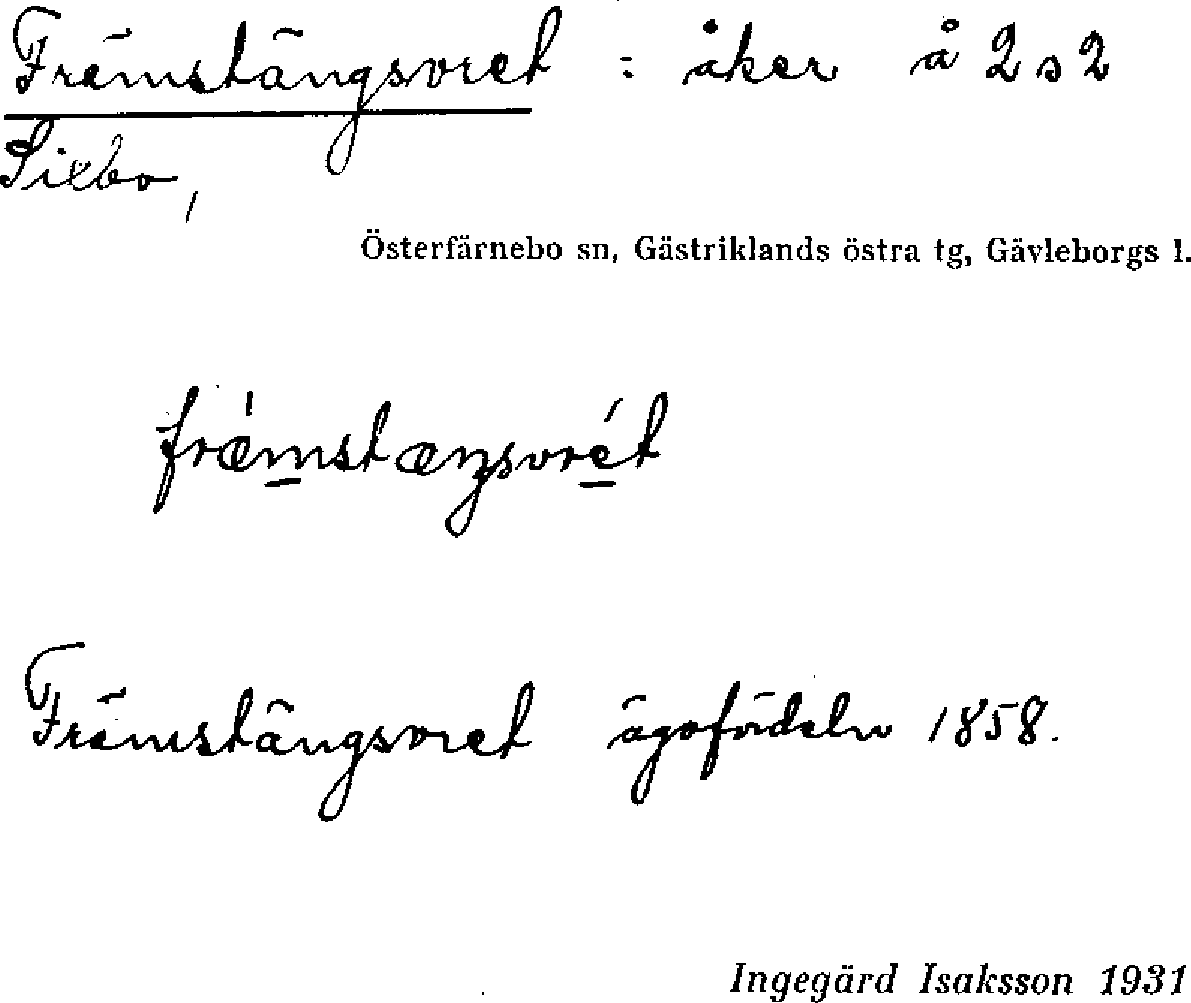 Främstängsvret : åker å 2 s 2
Sixbo,
Österfärnebo sn, Gästriklands östra tg, Gävleborgs l.
fræmstæŋsvrét
Främstängsvret ägofördeln 1858.
Ingegärd Isaksson 1931